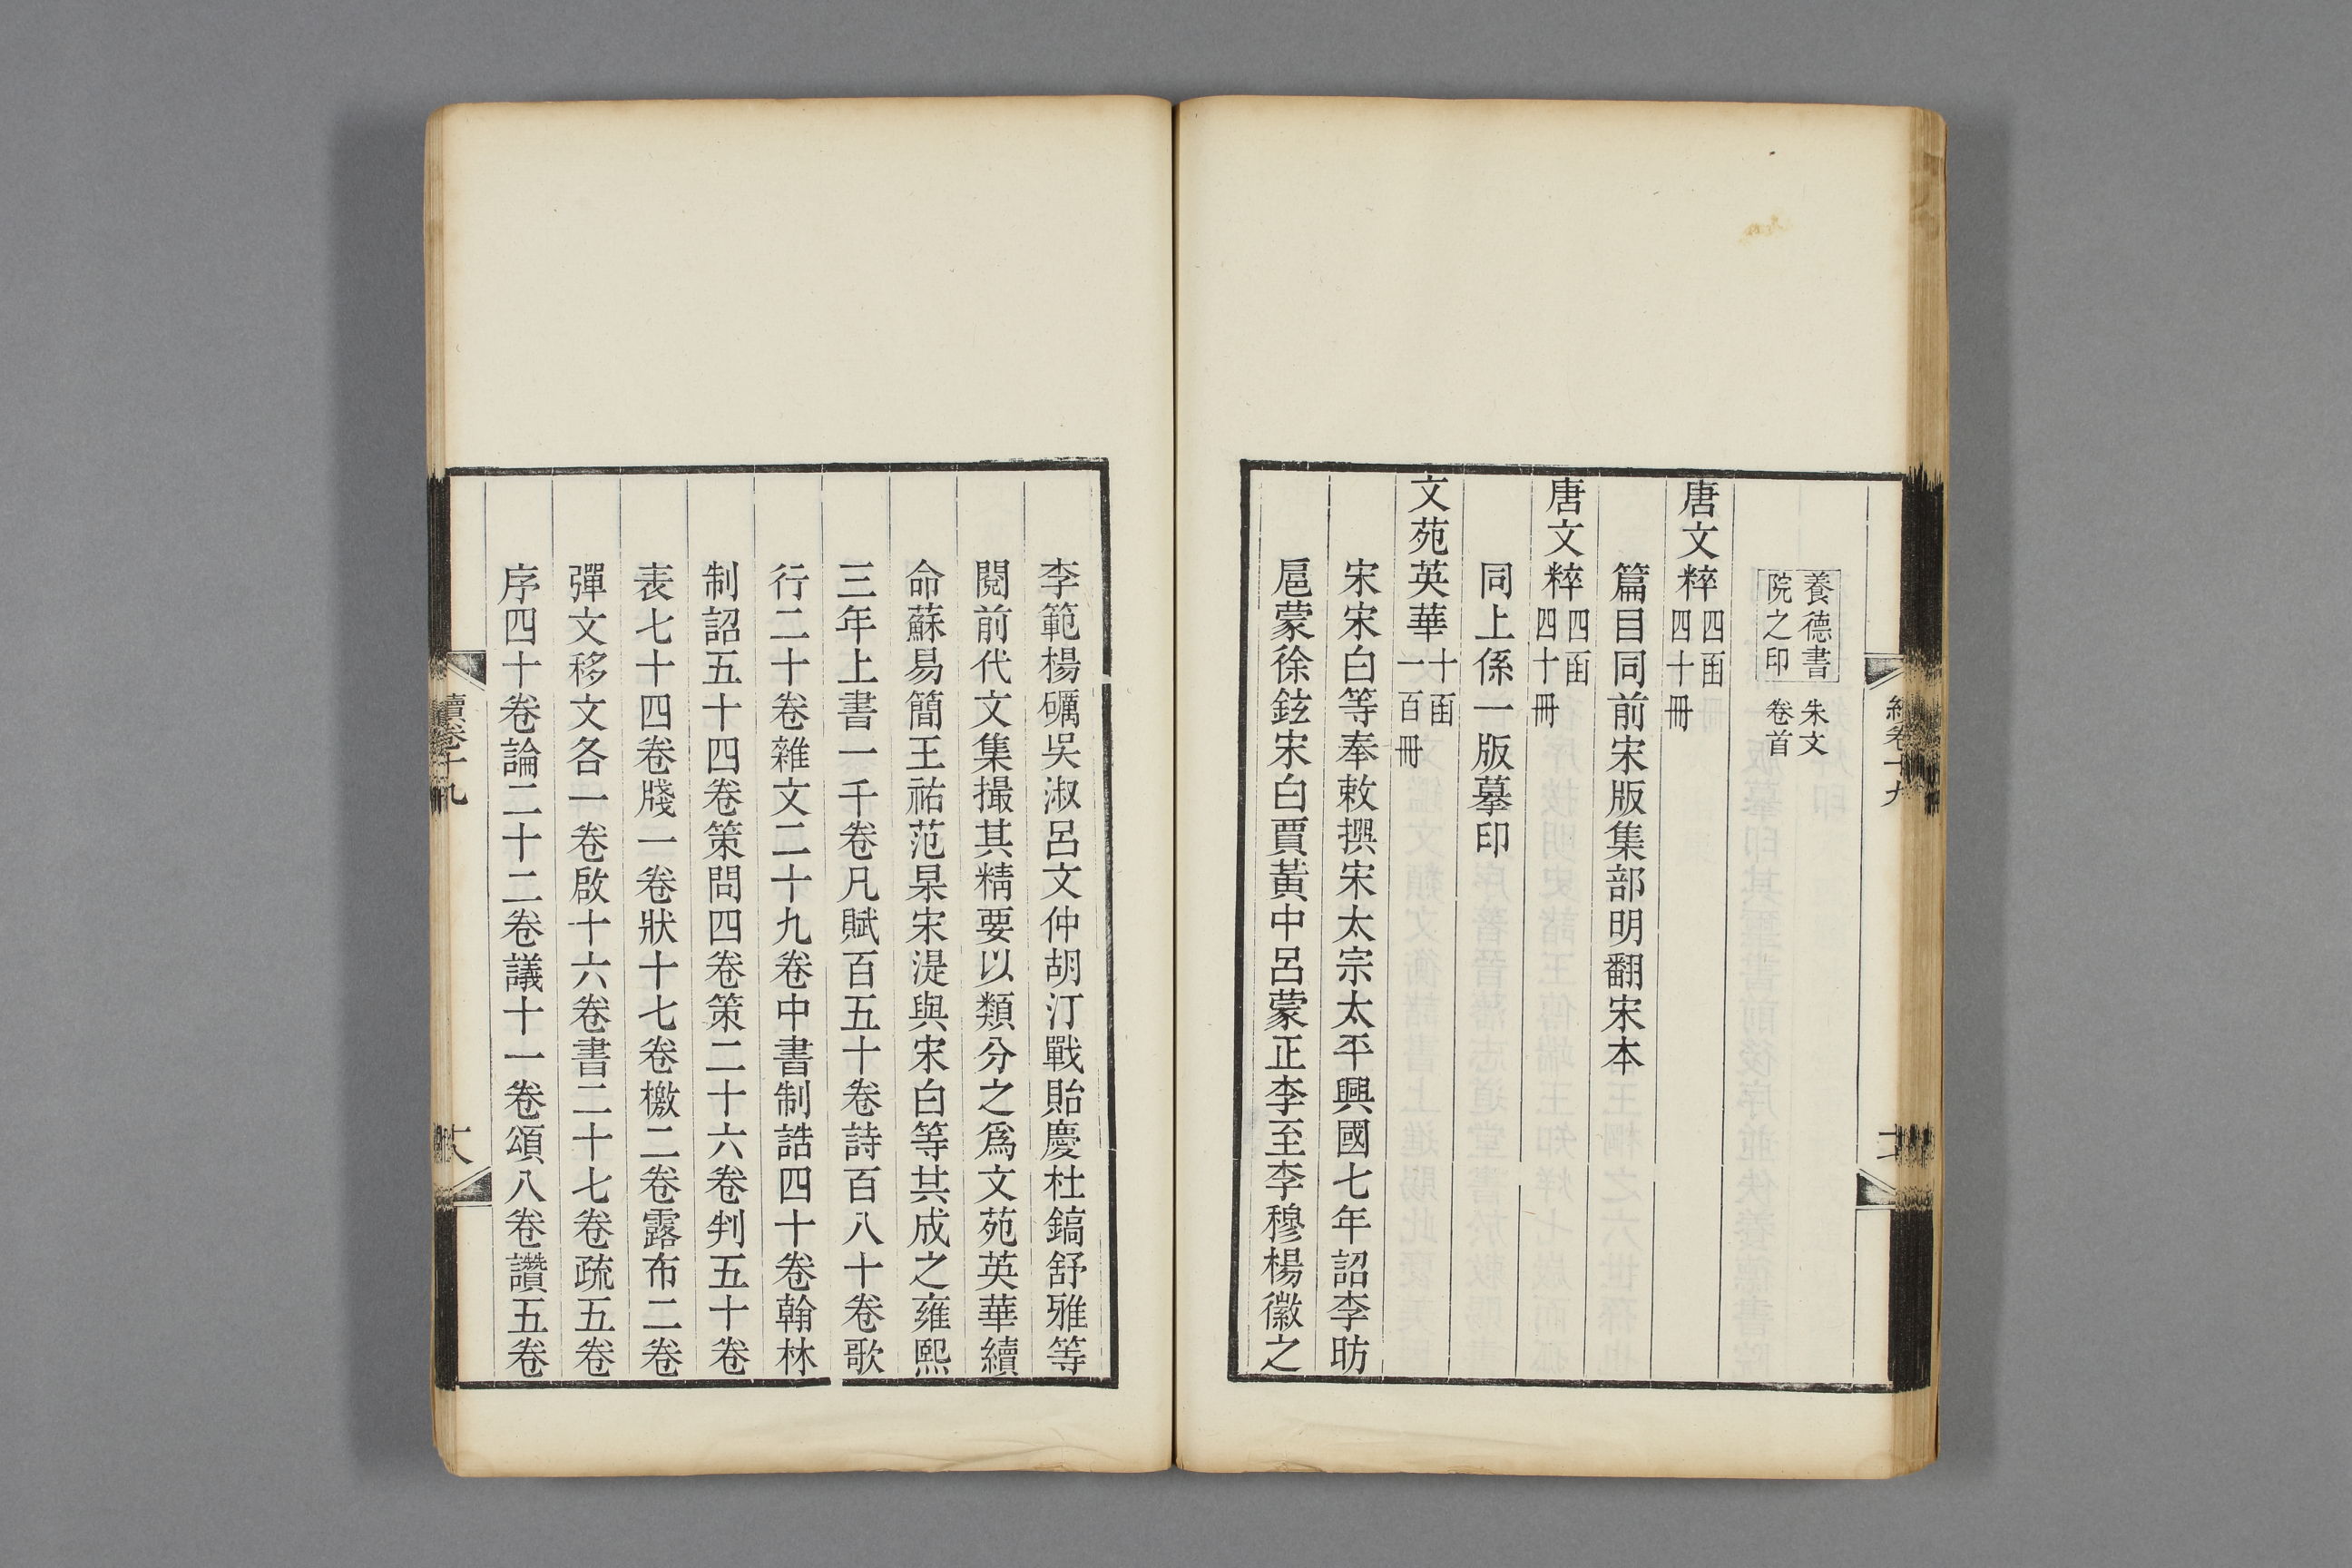 養德書
院之印
朱文
卷首
唐文粹四函
四十冊
篇目同前宋版集部明翻宋本
唐文粹四函
四十冊
同上係一版摹印
文苑英華十函
一百冊
宋宋白等奉敕撰宋太宗太平興國七年詔李昉
扈蒙徐鉉宋白賈黃中呂蒙正李至李穆楊徽之
李範楊礪吳淑呂文仲胡汀戰貽慶杜鎬舒雅等
閱前代文集撮其精要以類分之爲文苑英華續
命蘇易簡王祐范杲宋湜與宋白等共成之雍熙
三年上書一千卷凡賦百五十卷詩百八十卷歌
行二十卷雜文二十九卷中書制誥四十卷翰林
制詔五十四卷策問四卷策二十六卷判五十卷
表七十四卷牋一卷狀十七卷檄二卷露布二卷
彈文移文各一卷啟十六卷書二十七卷疏五卷
序四十卷論二十二卷議十一卷頌八卷讚五卷
續卷十九